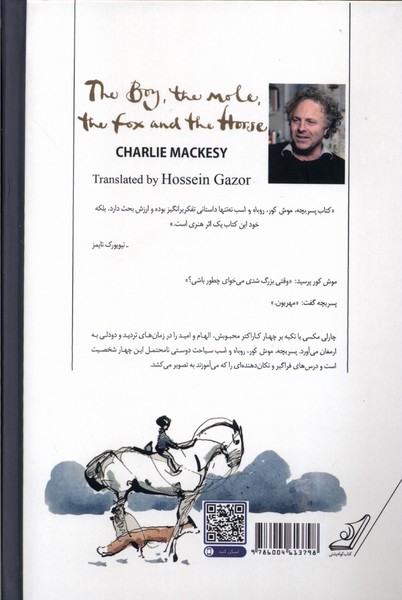 The Boy, the mole,
the fox and the Horse
CHARLIE MACKESY
Translated by Hossein Gazor
«کتاب پسربچه، موش کور، روباه و اسب نه‌تنها داستانی تفکربرانگیز بوده و ارزش بحث دارد، بلکه
خود این کتاب یک اثر هنری است.»
ـ نیویورک تایمز
موش کور پرسید: «وقتی بزرگ شدی می‌خوای چطور باشی؟»
پسربچه گفت: «مهربون.»
چارلی مکسی با تکیه بر چهار کاراکتر محبوبش، الهام و امید را در زمان‌های تردید و دودلی به
ارمغان می‌آورد. پسربچه، موش کور، روباه و اسب سیاحت دوستی نامحتمل این چهار شخصیت
است و درس‌های فراگیر و تکان‌دهنده‌ای را که می‌آموزند به تصویر می‌کشد.
اسکن کنید
9786004613798
کتاب کوله‌پشتی